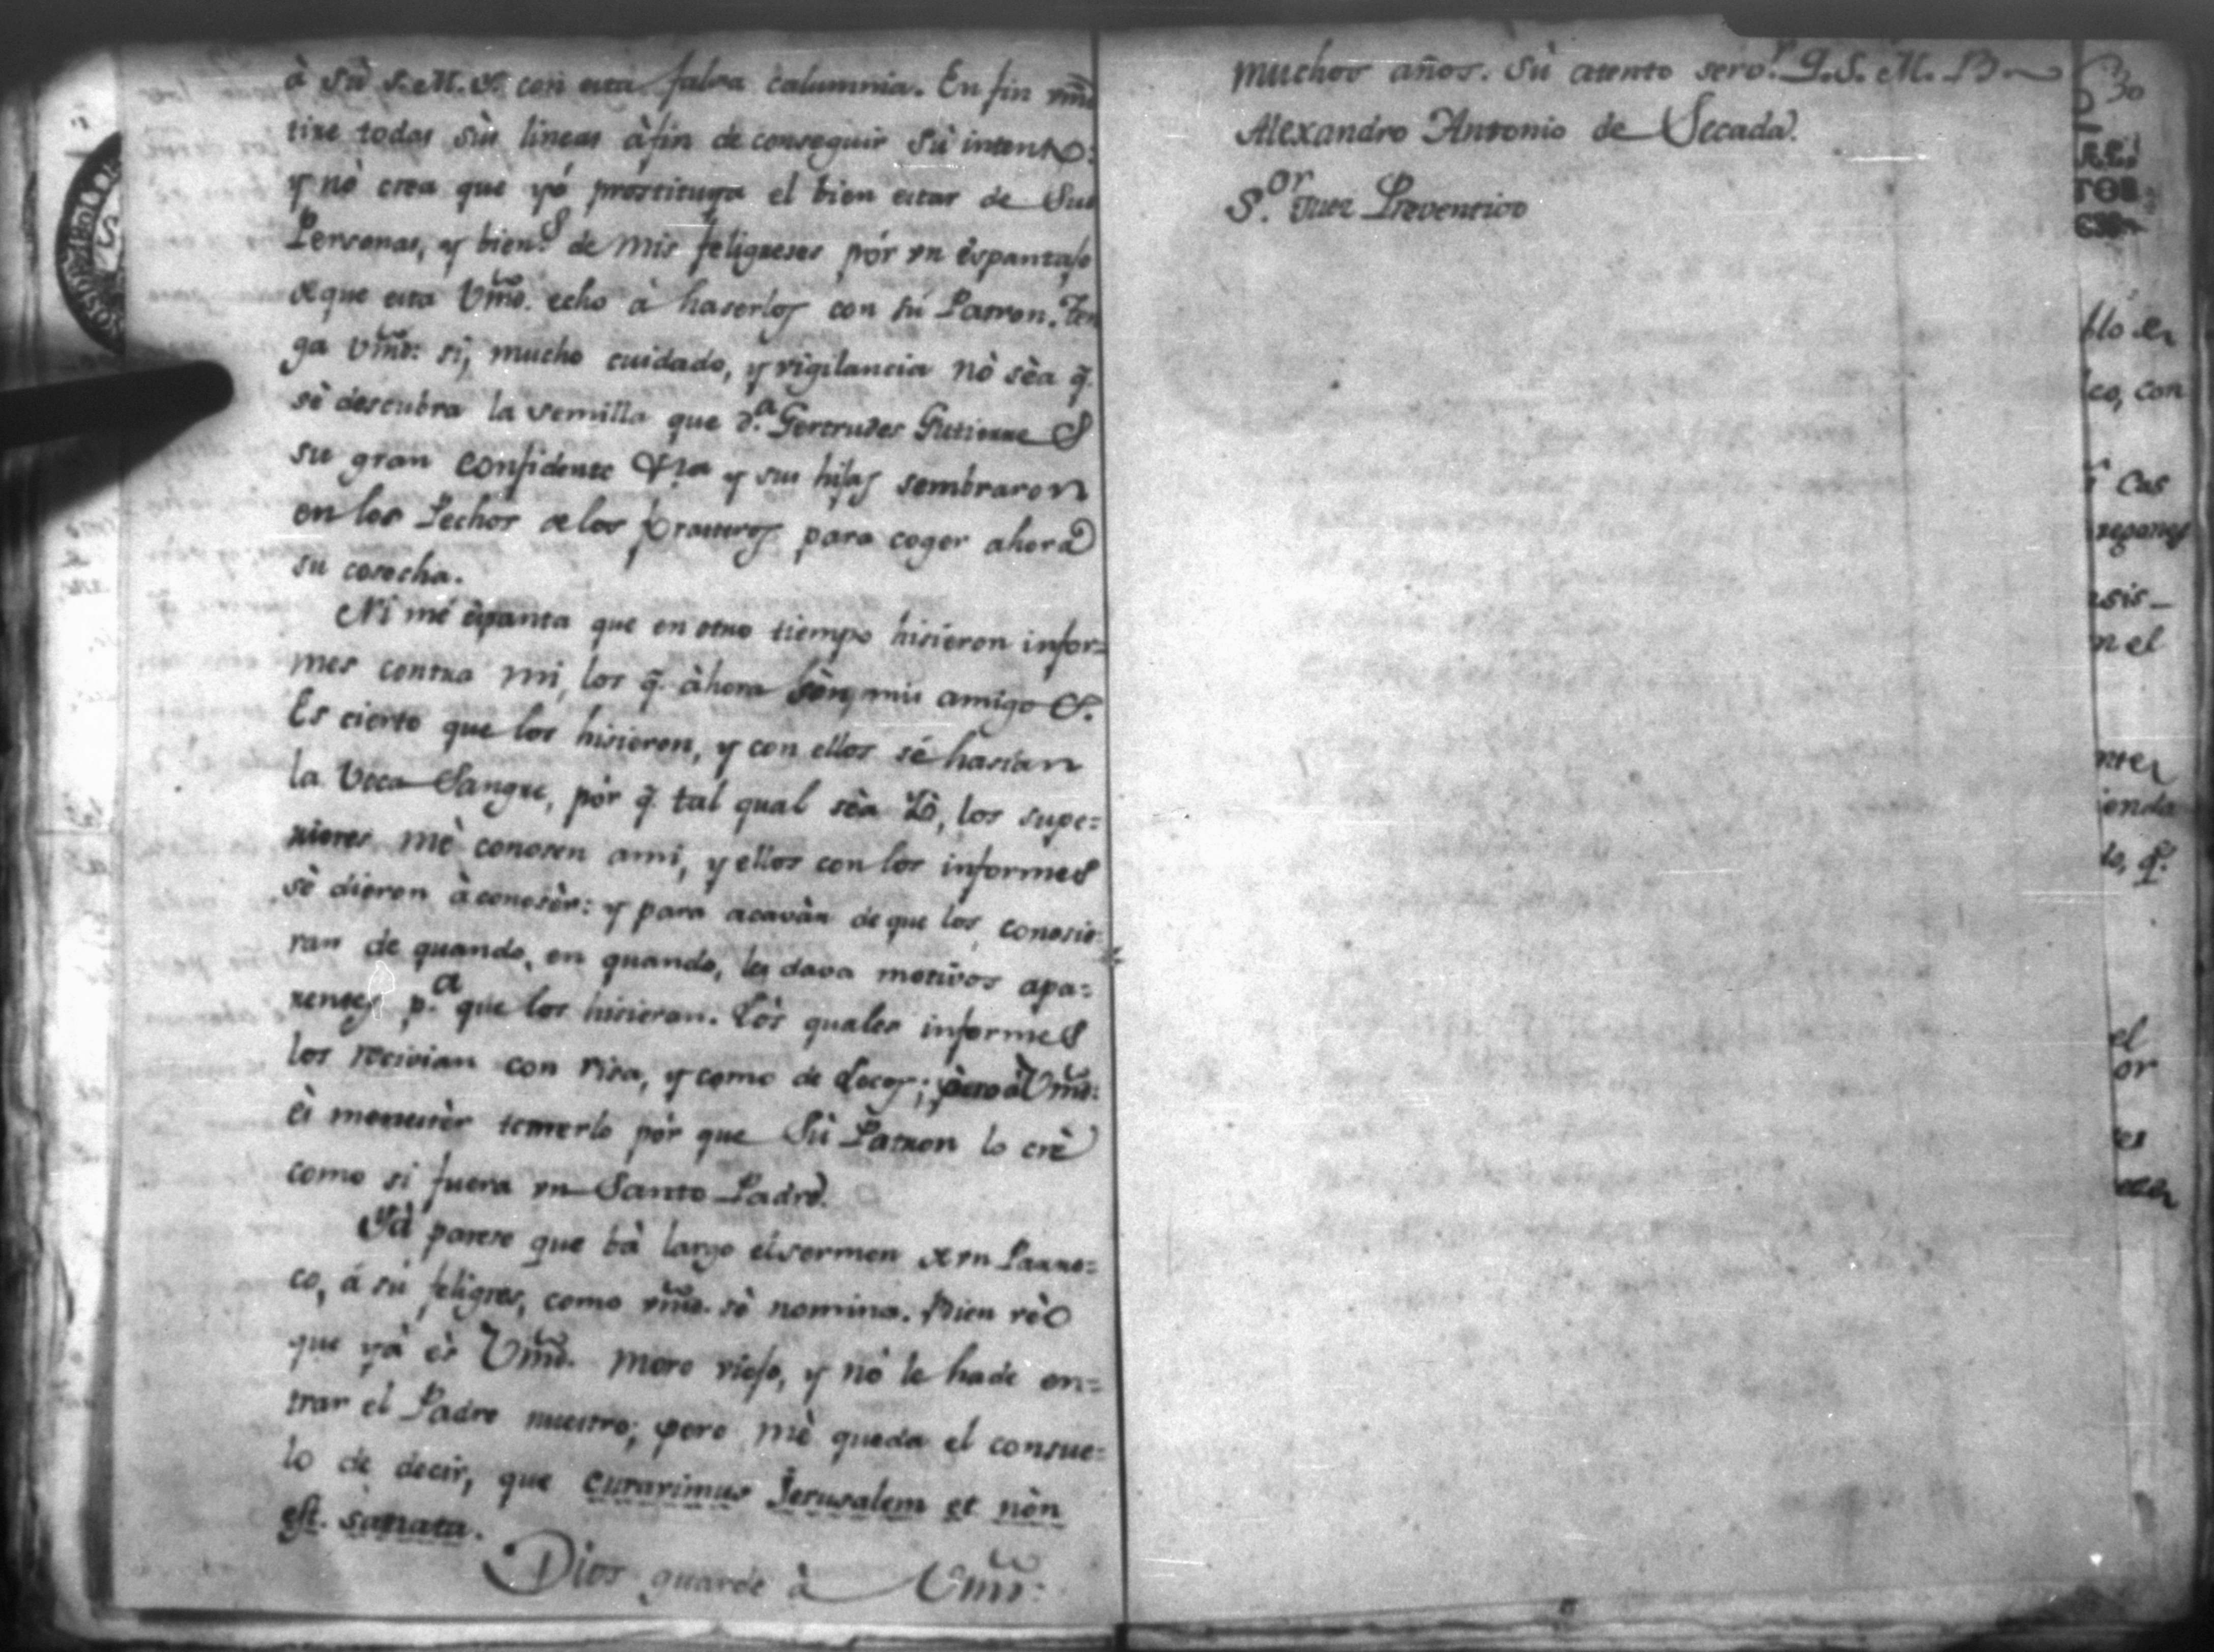 à sù S. M. Y. con esta falsa calumnia. En fin vm̃d
tire todas sùs lineas àfin de conseguir sù intento:
y nò crea que yó prostituya el bien estar de sus
Personas, y bien.s de mis feligueses pór vn êspantajo
de que esta Vm̃d. echo à haserlos con sú Patron. Ten
ga Vm̃d: si, mucho cuidado, y vigilancia nò sèa q̃.
sè descubra la semilla que D.a Gertrudes Gutierres
su gran confidente y sus hijas sembraron
en los Pechos de los para coger ahora
su cosecha.
Ni mé espanta que en otro tiempo hisieron infor=
mes contra mi, los q̃. àhora sòn mis amigos.
Es cierto que los hisieron, y con ellos sé hasian
la Voca Sangre, pòr q̃. tal qual sèa Yò, los supe=
riores mè conosen ami, y ellos con los informes
sè dieron àconosèr: y para acavàr de que los conosie
ran de quando, en quando, les dava motivos apa=
rentes p.a que los hisieran. Lòs quales informes
los recivian con risa, y como de Locos; pero àl Vm̃d:
ès menestèr temerlo pòr que Sù Patron lo crè
como si fuera vn Santo Padre.
Yà parese que bà largo el sermon de vn Parro=
co, á sú feligres, como vm̃d. sè nomina. Bien vèo
que yà ès Vm̃d. moro viejo, y nò le hade en=
trar el Padre nuestro; pero mè queda el consue=
lo de decir, que curavimus Jerusalem et nòn
est. sanata.
Dios guarde à Vm̃d:
muchos años. Sù atento serv.r Q. S. M. B.
Alexandro Antonio de Secada.
S.or Juez Preventivo
30
blo de
co, con
n el
enda
to, q̃.
el
or